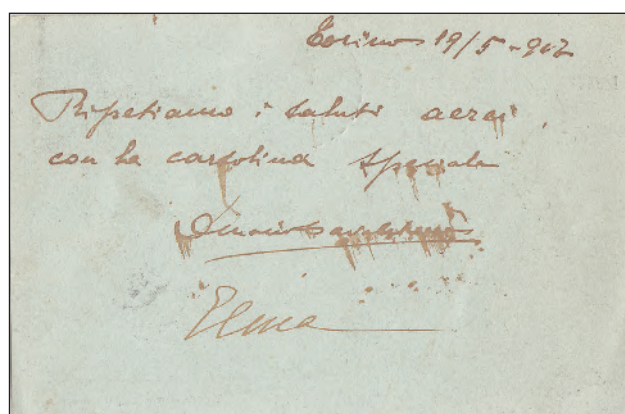 Torino 19/5-917
Ripetiamo i saluti aerei
con la cartolina speciale
Elma